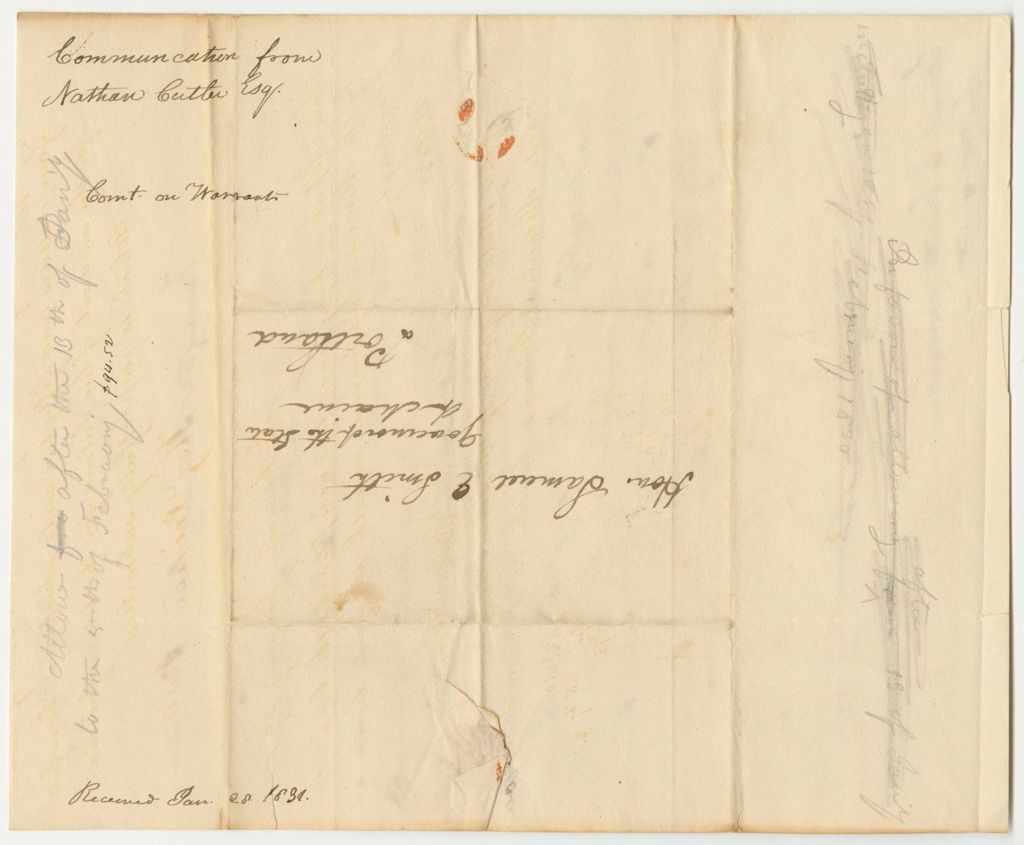 Communcation from
Nathan Cutler Esq.
Comt. on Warrants
Received Jan. 28. 1831.
Allow from after the 18th of Jan'y
to the 5th of February
$94.52
Hon. Samuel E Smith
Governor of the State
of Maine
Portland
February 1830
after
18 of Jan'y